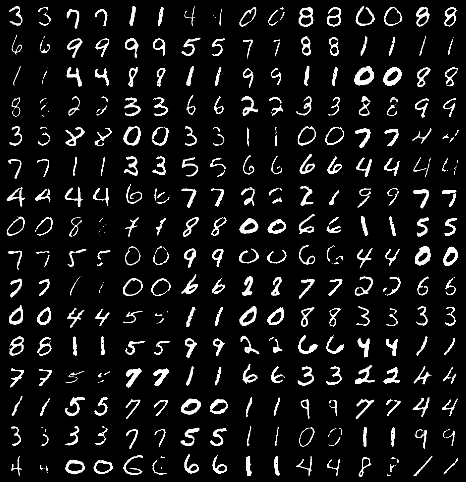 3 3 7 7 1 1 4 4 0 0 8 8 0 0 8 8
6 6 9 9 9 9 5 5 7 7 8 8 1 1 1 1
1 1 4 4 8 8 1 1 9 9 1 1 0 0 8 8
8 8 2 2 3 3 6 6 2 2 3 3 8 8 9 9
3 3 8 8 0 0 3 3 1 1 0 0 7 7 4 4
7 7 1 1 3 3 5 5 6 6 6 6 4 4 4 4
4 4 4 4 6 6 7 7 2 2 2 1 9 9 7 7
0 0 8 7 7 8 8 0 0 6 6 1 1 5 5
7 7 5 5 0 0 9 9 0 0 6 6 4 4 0 0
7 7 1 1 0 0 6 6 2 8 7 7 2 2 6 6
0 0 4 4 5 5 1 1 0 0 8 8 3 3 3 3
8 8 1 1 5 5 9 9 2 2 6 6 4 4 1 1
7 7 5 5 7 7 1 1 6 6 3 3 2 2 4 4
1 1 5 5 7 7 0 0 1 1 9 9 7 7 4 4
3 3 3 3 7 7 5 5 1 1 0 0 1 1 9 9
4 4 0 0 6 6 6 6 1 1 4 4 8 8 1 1